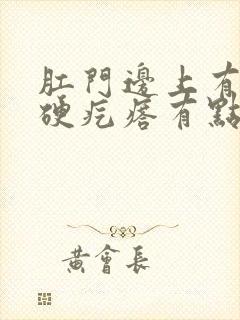 肛門邊上有
硬疙瘩有點
黃會長